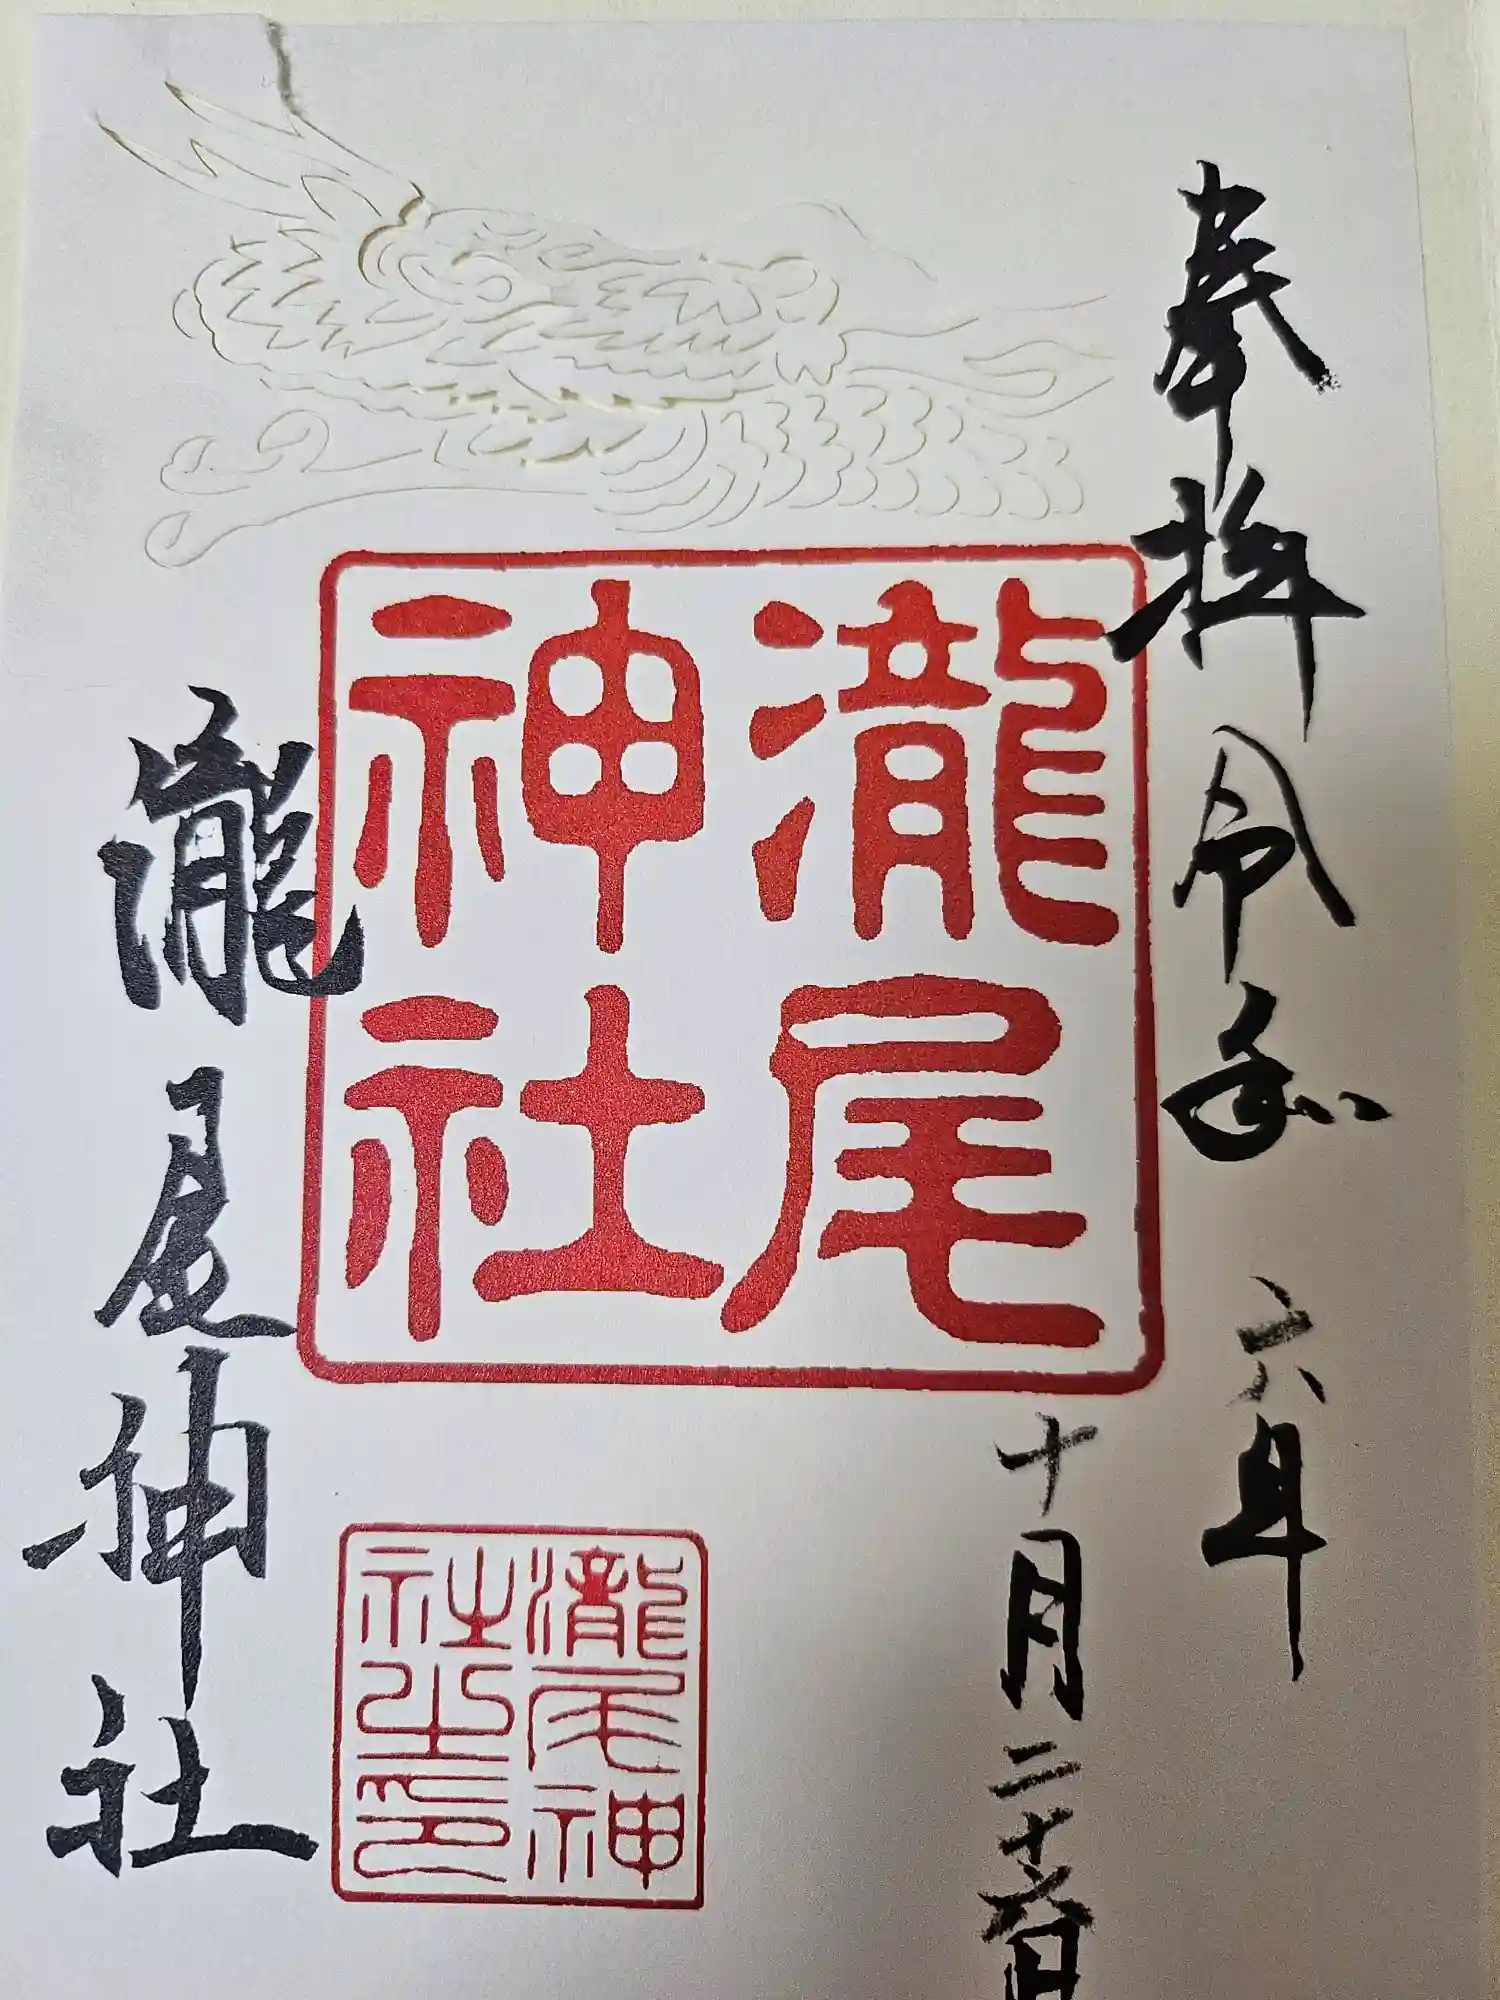 奉拝 令和 六年
十月二十六日
瀧尾
神社
瀧尾神
社之印
瀧尾神社